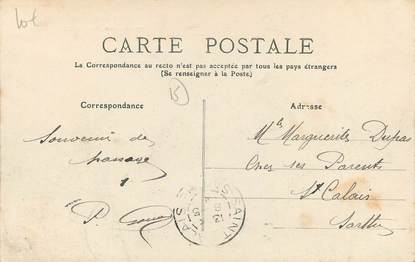 Lot
CARTE POSTALE
La Correspondance au recto n'est pas acceptée par tous les pays étrangers
(Se renseigner à la Poste)
Correspondance
15
Adresse
Souvenir de
passage
Mle Marguerite Dupas
Chez ses Parents
St Calais
Sarthe
P.
SAINT